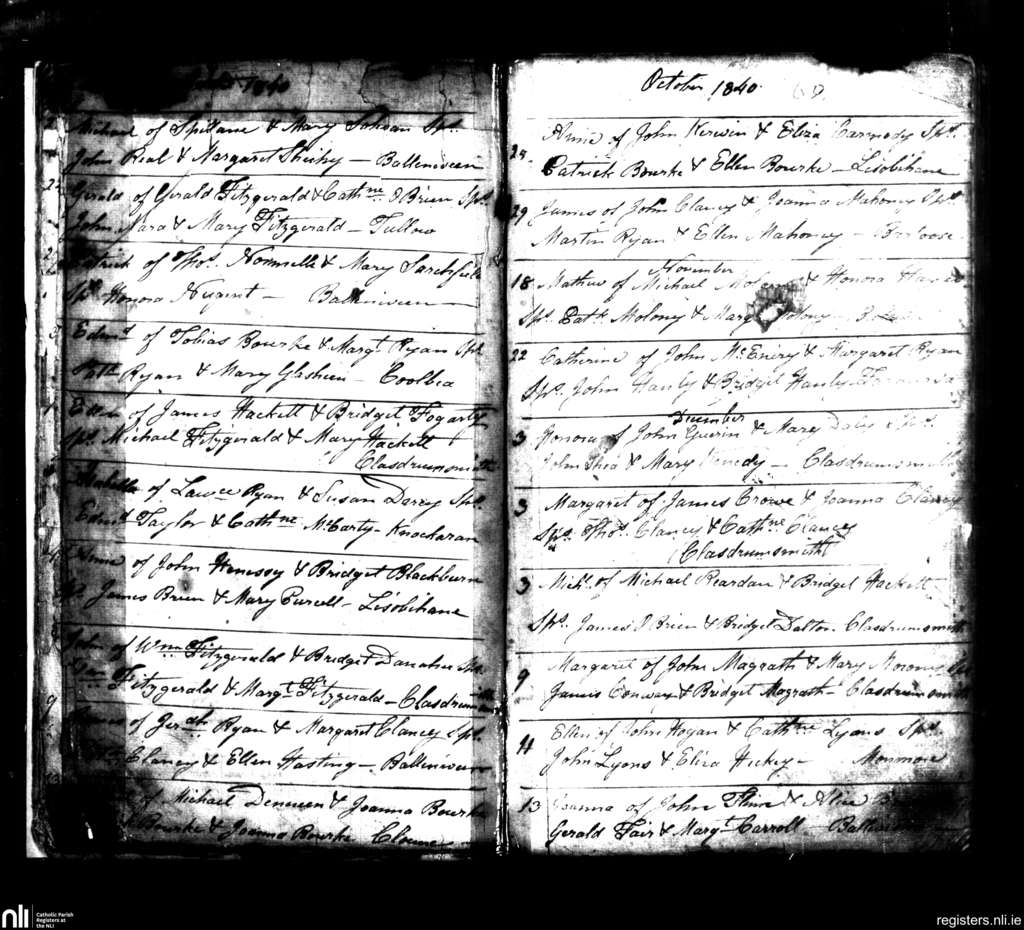 1840
Michael of Spillane & Mary Sps.
John Real & Margaret Sheehy — Ballinveen
Gerald of Gerald Fitzgerald & Cathne O Brien Sps.
John Mara & Mary Fitzgerald — Tullow
Patrick of Thos. & Mary Sarchfield
Sps. Honora Nugent — Ballinveen
3 Edmd of Tobias Bourke & Margt. Ryan Sps.
Patk Ryan & Mary Glasheen — Coolbea
Ellen of James Hackett & Bridget Fogarty
Sps. Michael Fitzgerald & Mary Hackett
Clasdrumsmith
of Lawce Ryan & Susan Darcy Sps.
Edmd Taylor & Cathne McCarty — Knockaran
Anne of John Henessy & Bridget Blackburn
Sps. James Brien & Mary Purcell — Lisobihane
John of Wm Fitzgerald & Bridget Danaher Sps.
Fitzgerald & Margt. Fitzgerald — Clasdrum
9 of Ryan & Margaret Clancy Sps.
Clancy & Ellen Hasting — Ballinveen
of Michael Deneen & Joanna Bourke
Bourke & Joanna Bourke Cloune
October 1840.
Anne of John Kerwin & Eliza Carmody Sps.
24. Patrick Bourke & Ellen Bourke — Lisobihane
29 James of John Clancy & Joanna Mahoney Sps.
Martin Ryan & Ellen Mahoney —
November
18 Mathew of Michael & Honora
Sps. Patk. Moloney & Margt Moloney —
22 Catherine of John McEniry & Margaret Ryan
Sps. John Hanly & Bridget Hanly
December
3 Honora of John Guerin & Mary Daly Sps.
John Shea & Mary Kenedy — Clasdrumsmith
3 Margaret of James Crowe & Joanna Clancy
Sps. Thos. Clancy & Cathne Clancy
Clasdrumsmith
3 Michl. of Michael Reardan & Bridget Hackett
Sps. James O Brien & Bridget Dalton. Clasdrumsmith
9 Margaret of John Magrath & Mary
James Conway & Bridget Magrath — Clasdrumsmith
11 Ellen of John Hogan & Cathne Lyons Sps.
John Lyons & Eliza Hickey — Monmore
13 Joanna of John & Alice
Gerald Fair & Margt. Carroll —
nli
Catholic Parish
Registers at
the NLI
registers.nli.ie